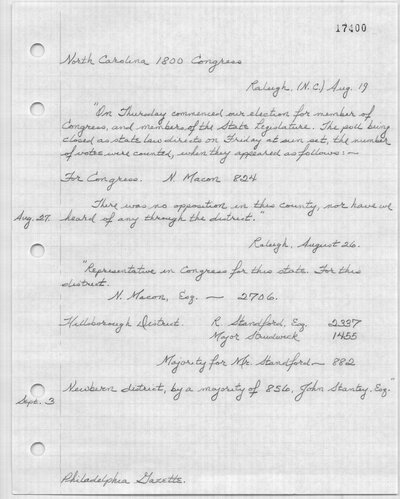 17400
North Carolina 1800 Congress
Raleigh, (N.C.) Aug. 19
"On Thursday commenced our election for member of
Congress, and members of the State Legislature. The poll being
closed as state law directs on Friday at sun set, the number
of votes were counted, when they appeared as follows:—
For Congress. N. Macon 824
There was no opposition in this county, nor have we
Aug. 27. heard of any through the district."
Raleigh, August 26.
"Representative in Congress for this state. For this
district.
N. Macon, Esq. — 2706.
Hillsborough District. R Standford, Esq. 2337
Major Strudwick 1455
Majority for Mr. Standford — 882
Newbern district, by a majority of 856, John Stanley, Esq."
Sept. 3
Philadelphia Gazette.